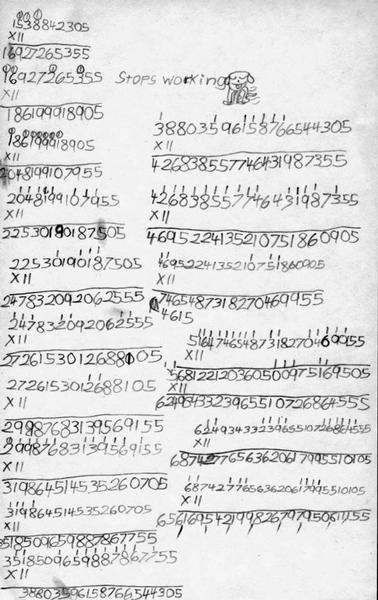 1538842305
X11
16927265355
16927265355 Stops working
X11
186199918905
186199918905
X11
2048199107955
2048199107955
X11
22530190187505
22530190187505
X11
247832092062555
247832092062555
X11
2726153012688105
2726153012688105
X11
29987683139569155
29987683139569155
X11
319864514535260705
319864514535260705
X11
3518509659887867755
3518509659887867755
X11
38803596158766544305
38803596158766544305
X11
426838557746431987355
426838557746431987355
X11
4695224135210751860905
4695224135210751860905
X11
4615
X11
568122120360500975169505
X11
6249343323965510726864555
6249343323965510726864555
X11
68742776563620617995510105
68742776563620617995510105
X11